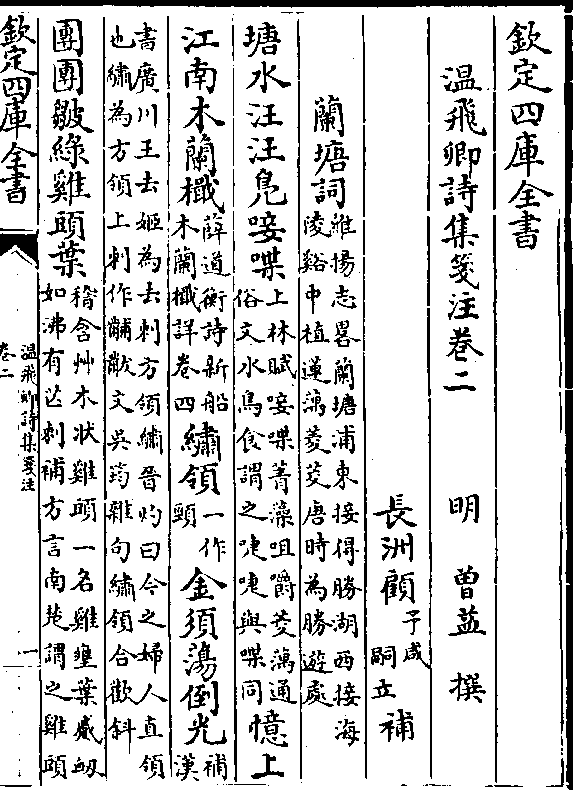 欽定四庫全書
温飛卿詩集箋注卷二
明 曾益 撰
長洲顧予咸 嗣立 補
蘭塘詞維揚志畧蘭塘浦東接得勝湖西接海陵谿中植蓮藕菱芡唐時為勝遊處
塘水汪汪鳧唼喋上林賦唼喋菁藻咀嚼菱藕通俗文水鳥食謂之啑啑與喋同憶上
江南木蘭檝薛道衡詩新船木蘭檝詳卷四繡領一作頸金須蕩倒光補漢
書廣川王去姬為去刺方領繡晉灼曰今之婦人直領也繡為方領上刺作黼黻文吳筠雜句繡領合歡斜
團團皺綠雞頭葉稽含艸木狀雞頭一名雞壅葉蹙衂如沸有芒刺補方言南楚謂之雞頭
欽定四庫全書
温飛卿詩集箋注
卷二
一